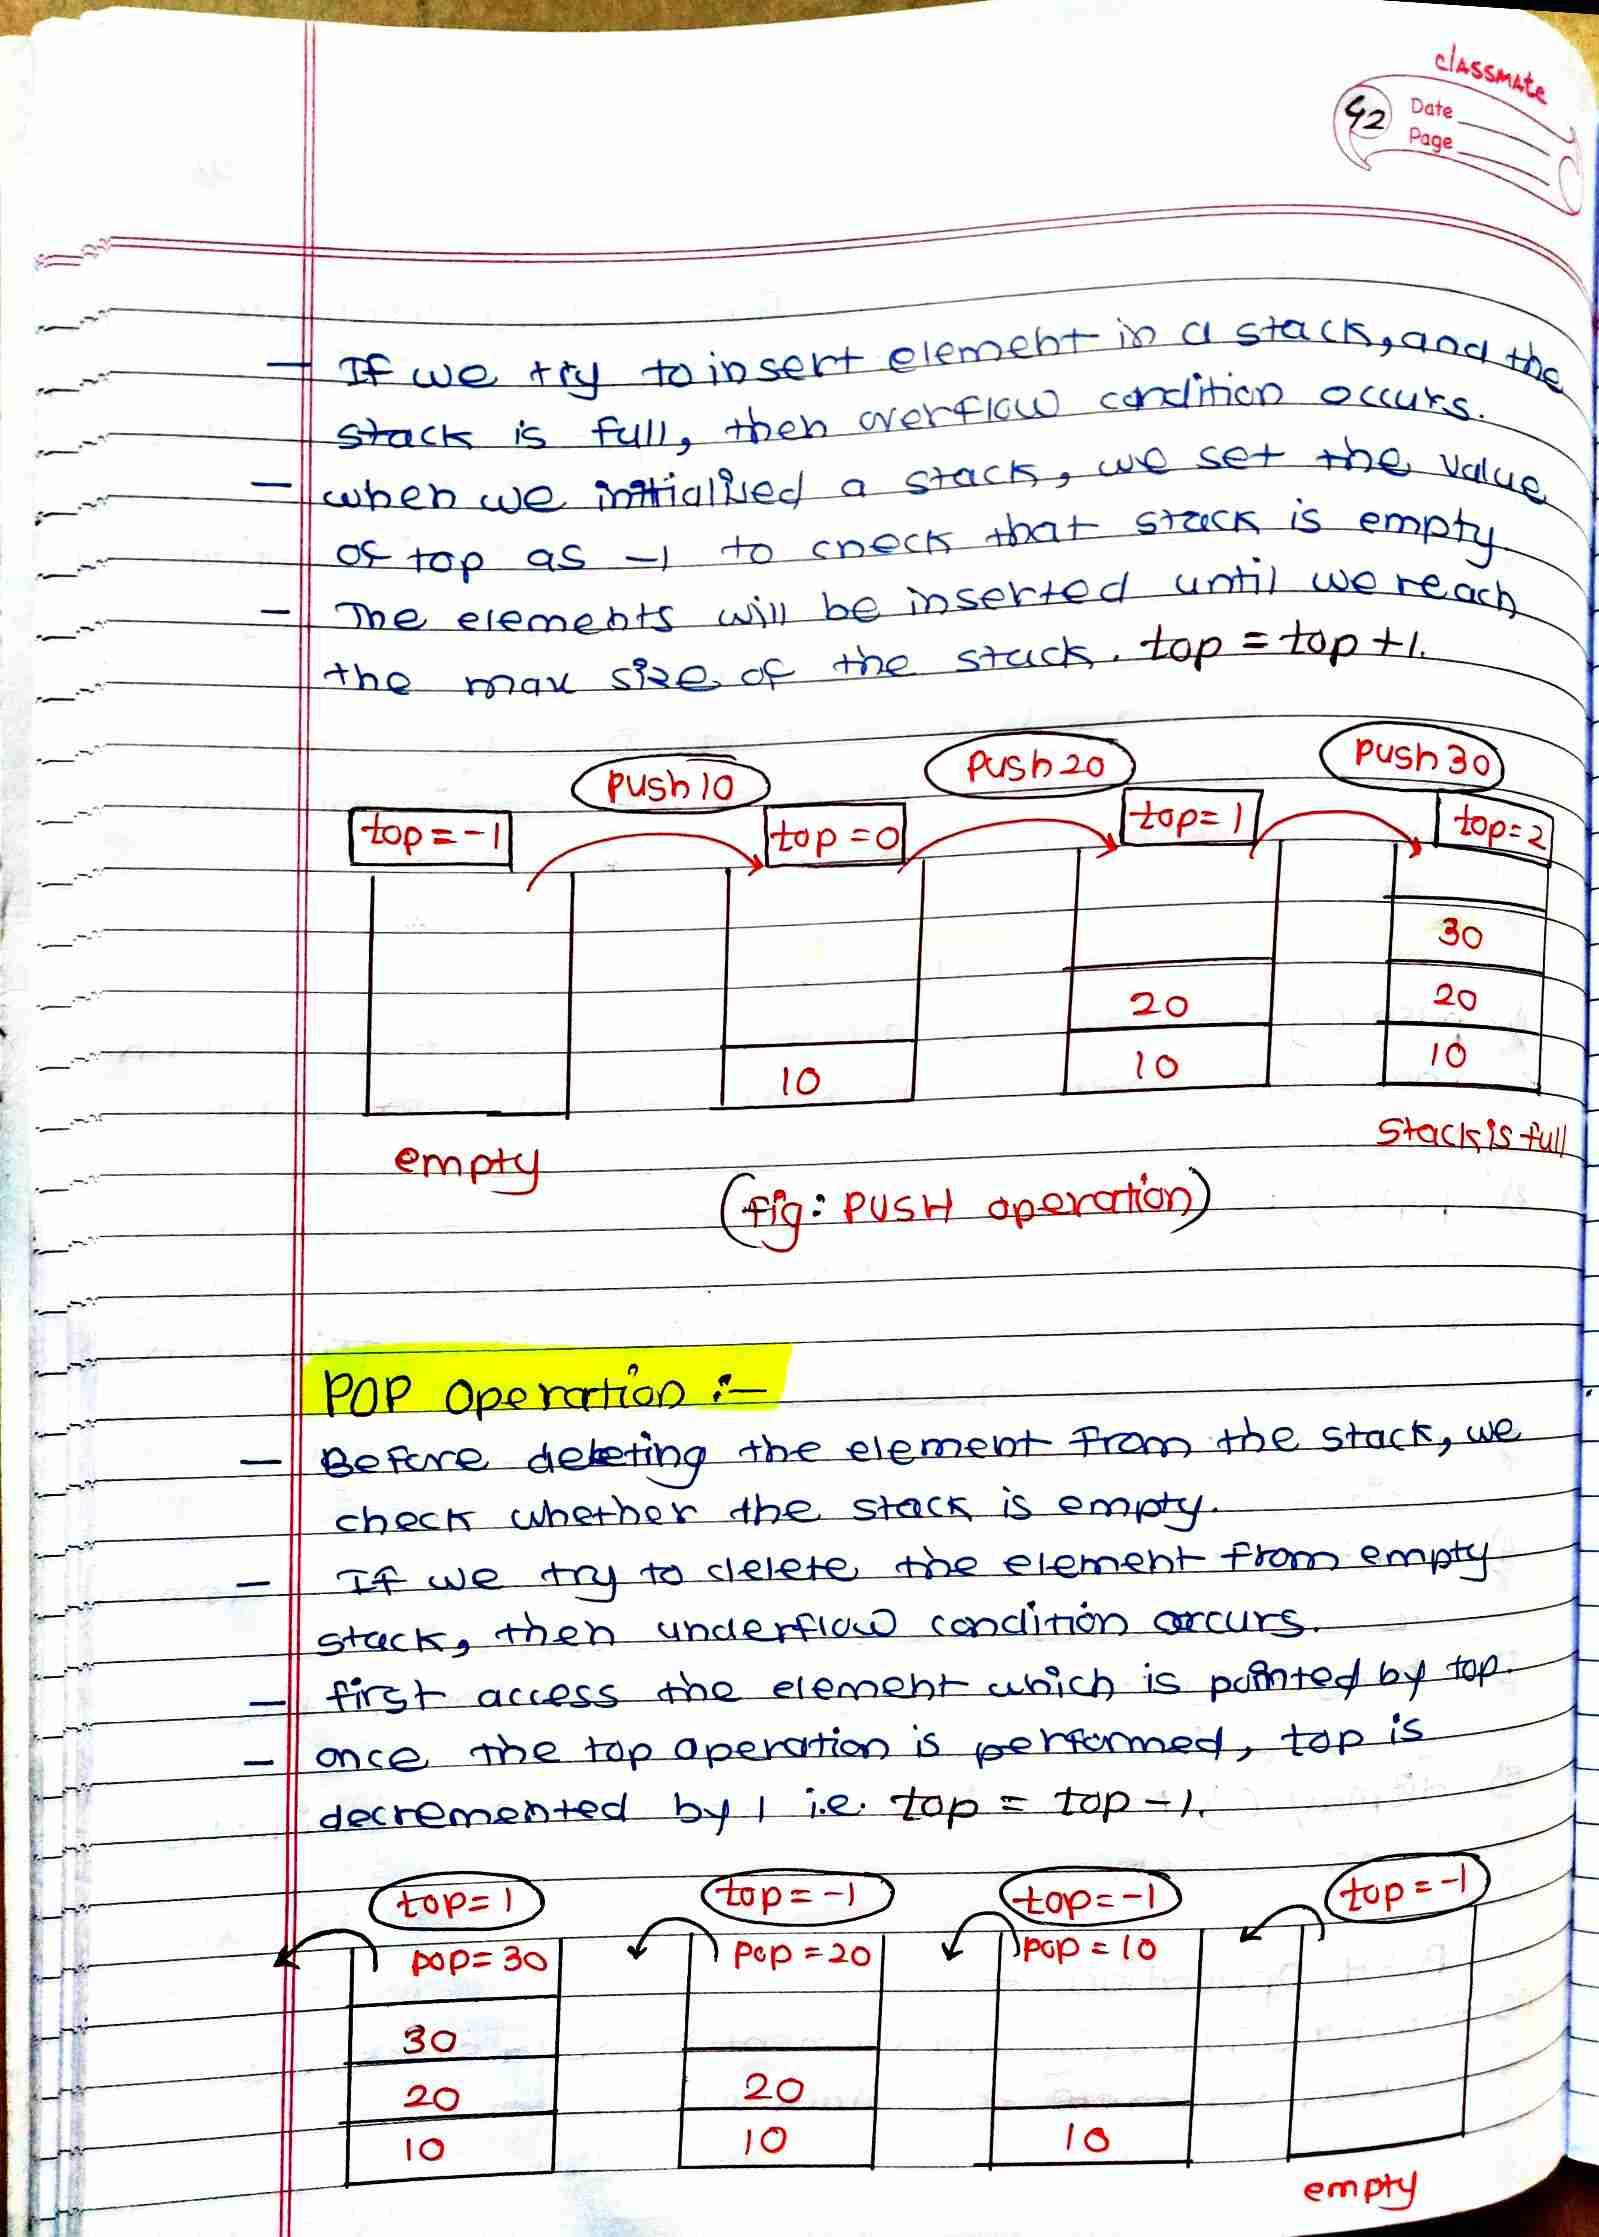 classmate
42
Date
Page
- If we try to insert element in a stack, and the
stack is full, then overflow condition occurs.
- when we initialised a stack, we set the value
of top as -1 to check that stack is empty
- The elements will be inserted until we reach
the max size of the stack. top = top +1.
push 10 push 20 push 30
top = -1 top = 0 top = 1 top = 2
30
20 20
10 10 10
empty Stack is full
(fig: PUSH operation)
POP Operation :-
- Before deleting the element from the stack, we
check whether the stack is empty.
- If we try to delete the element from empty
stack, then underflow condition occurs.
- first access the element which is pointed by top.
- once the top operation is performed, top is
decremented by 1 i.e. top = top -1.
top = 1 top = -1 top = -1 top = -1
pop = 30 pop = 20 pop = 10
30
20 20
10 10 10
empty